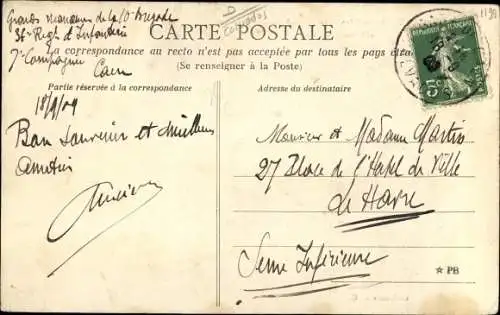 Grandes manœuvres de la 10e Brigade
36e Regt d'Infanterie
7e Compagnie
Caen
CARTE POSTALE
La correspondance au recto n'est pas acceptée par tous les pays
(Se renseigner à la Poste)
Partie réservée à la correspondance
Adresse du destinataire
RÉPUBLIQUE FRANÇAISE
5c
POSTES
18/9/09
Bon souvenir et meilleures
amitiés
Monsieur et Madame Martin
27 Place de l'Hotel de Ville
Le Havre
Seine Inférieure
★ PB